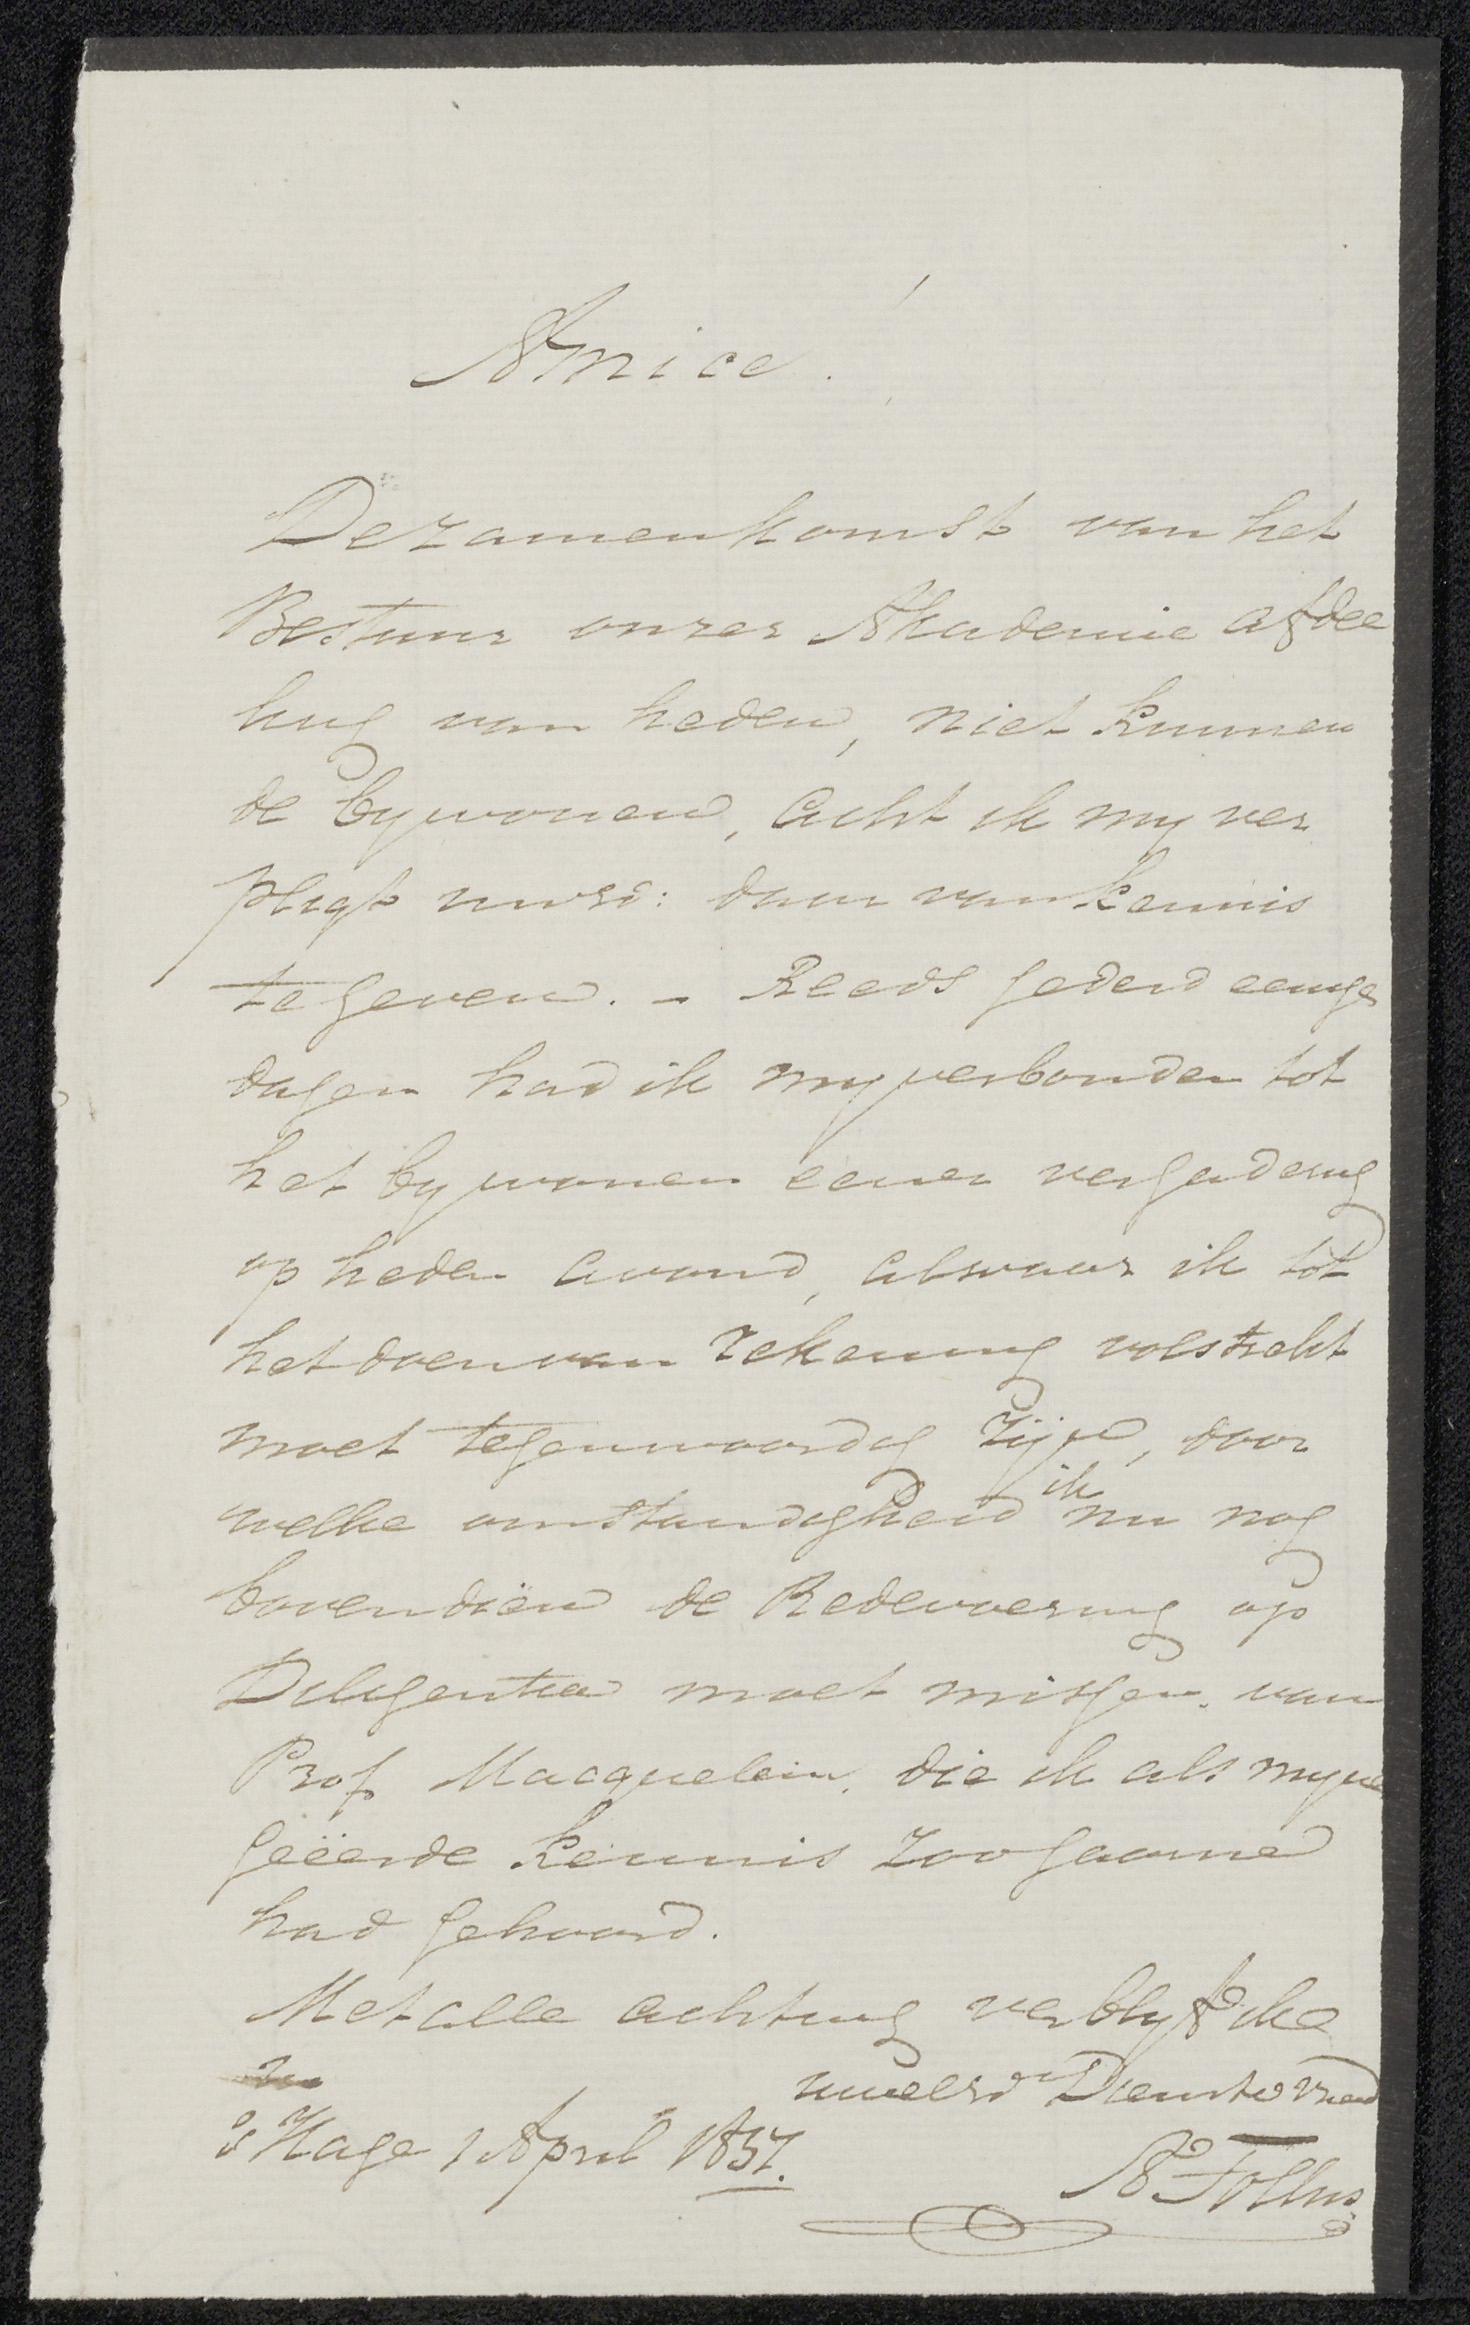 Amice!
De zamenkomst van het
Bestuur onzer Akademie afdee
ling van heden, niet kunnen
de bywonen, acht ik my ver
pligt uwEd: daar van kennis
te geven. - Reeds gederd eenige
dagen had ik my verbonden tot
het bywonen eener vergadering
op heden avond, alwaar ik tot
het doen van rekening volstrekt
moet tegenwoordig zijn, door
welke omstandigheid ik nu nog
bovendien de Redevoering op
Diligentia moet missen. van
Prof Macquelin, die ik als myne
geëerde kennis zoo gaarne
had gehoord.
Met alle achting verblyf ike
Dienstv Vriend
's Hage 1 April 1837.